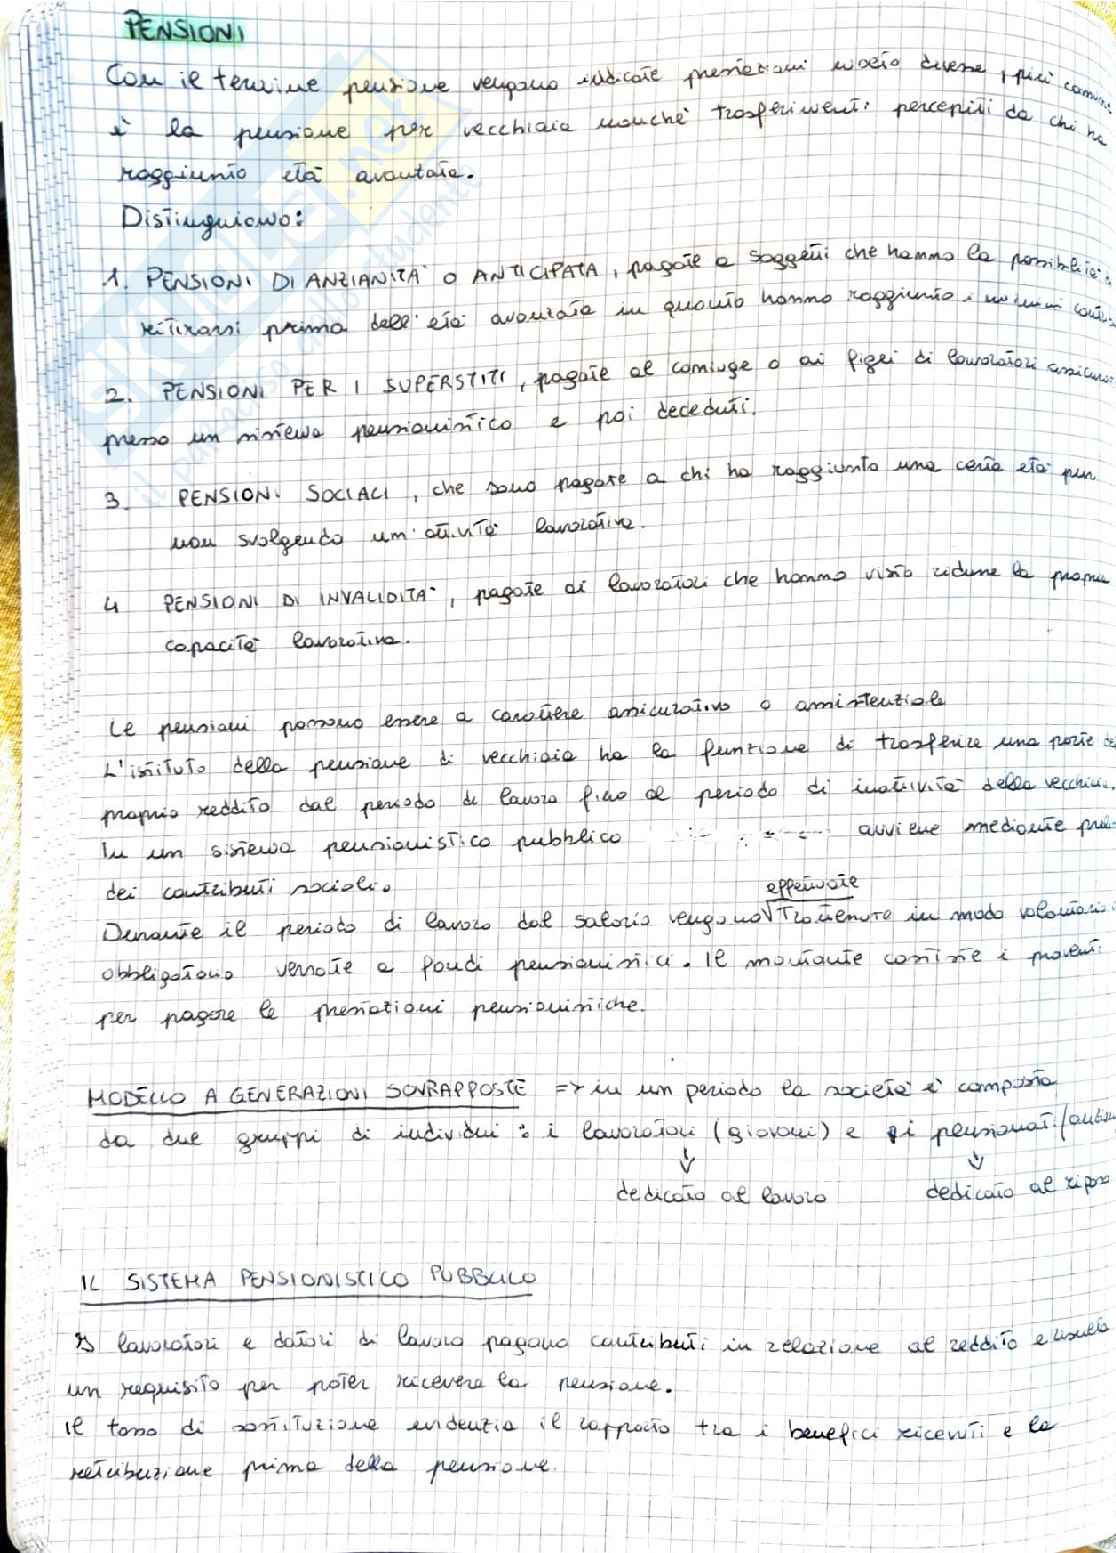 PENSIONI
Con il termine pensione vengono indicate prestazioni molto diverse, più comuni
è la pensione per vecchiaia nonché trasferimenti percepiti da chi ha
raggiunto età avanzata.
Distinguiamo:
1. PENSIONI DI ANZIANITÀ O ANTICIPATA, pagate a soggetti che hanno la possibilità
ritirarsi prima dell'età avanzata in quanto hanno raggiunto i minimi
2. PENSIONI PER I SUPERSTITI, pagate al coniuge o ai figli di lavoratori
presso un sistema pensionistico e poi deceduti.
3. PENSIONI SOCIALI, che sono pagate a chi ha raggiunto una certa età pur
non svolgendo un'attività lavorativa.
4 PENSIONI DI INVALIDITA', pagate ai lavoratori che hanno visto ridurre la propria
capacità lavorativa.
Le pensioni possono essere a carattere assicurativo o assistenziale
L'istituto della pensione di vecchiaia ha la funzione di trasferire una parte del
proprio reddito dal periodo di lavoro fino al periodo di inattività della vecchiaia.
In un sistema pensionistico pubblico avviene mediante
dei contributi sociali.
effettuate
Durante il periodo di lavoro dal salario vengono √Trattenute in modo volontario
obbligatorio versate a fondi pensionistici. Il montante costitie i proventi
per pagare le prestazioni pensionistiche.
MODELLO A GENERAZIONI SOVRAPPOSTE => in un periodo la società è composta
da due gruppi di individui: i lavoratori (giovani) e i pensionati/
↓ ↓
dedicato al lavoro dedicato al riposo
IL SISTEMA PENSIONISTICO PUBBLICO
I lavoratori e datori di lavoro pagano contributi in relazione al reddito e
un requisito per poter ricevere la pensione.
Il tasso di sostituzione evidenzia il rapporto tra i benefici ricevuti e la
retribuzione prima della pensione.